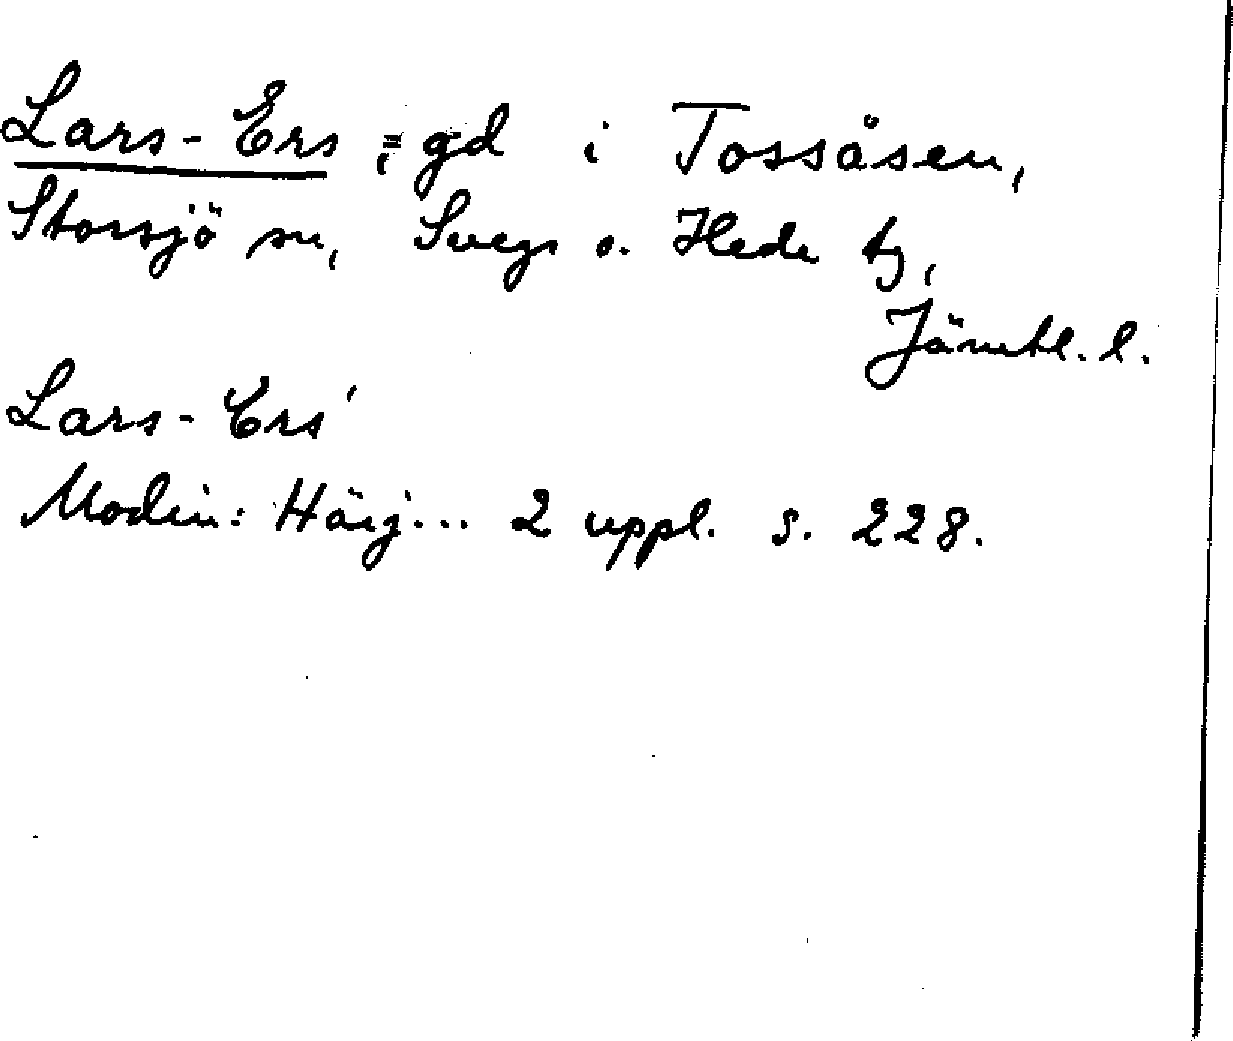 Lars-Ers, gd i Tossåsen,
Storsjö sn, Svegs o. Hede tg,
Jämtl. l.
Lars-Ers'
Modin: Härj... 2 uppl. s. 228.